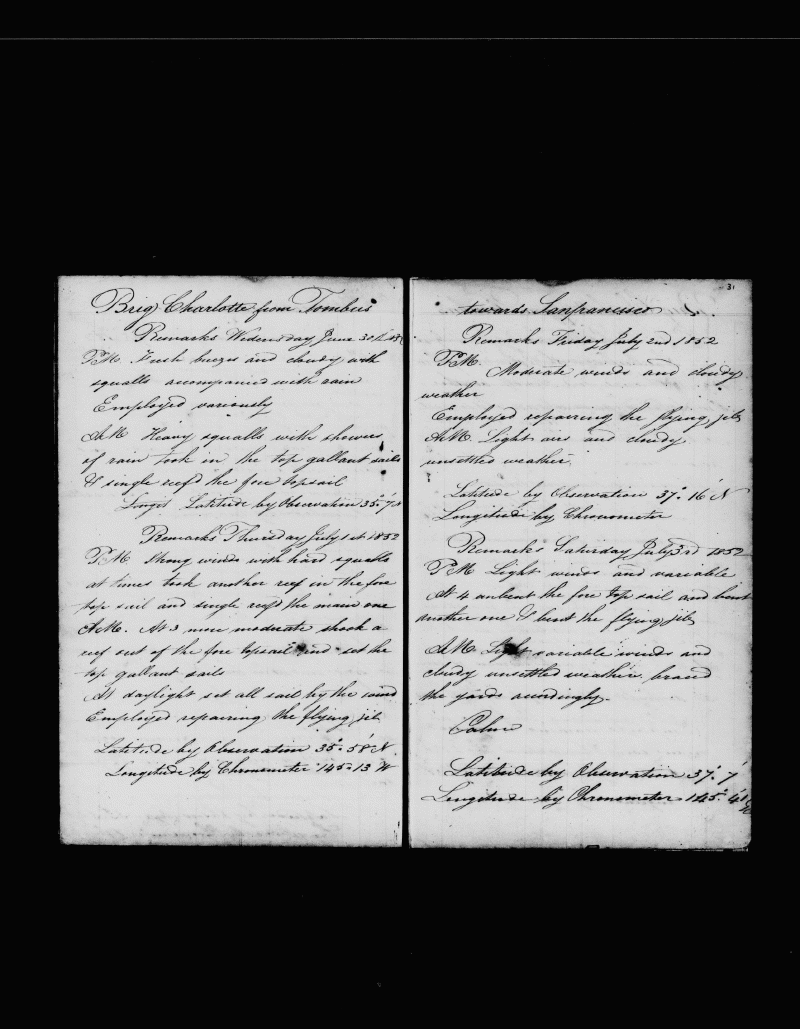 Brig Charlotte from Tombus
Remarks Wedensday June 30th 18
PM. Fresh breezes and cloudy with
squalls accompanied with rain
Employed variously
AM Heavy squalls with showers
of rain took in the top gallant sails
& single reef'd the fore topsail
Latitude by Observation 35°
Remarks Thursday July 1st 1852
PM Strong winds with hard squalls
at times took another reef in the fore
top sail and single reef'd the main one
AM. At 3 more moderate shook a
reef out of the fore topsail and set the
top gallant sails
At daylight set all sail by the wind
Employed repairing the flying jib
Latitude by Observation 35°. 58' N.
Longitude by Chronometer 145° 13' W
31
towards Sanfrancisco
Remarks Friday July 2nd 1852
PM.
Moderate winds and cloudy
weather
Employed repairing the flying jib
AM. Light airs and cloudy
unsettled weather
Latitude by Observation 37°. 16' N
Longitude by Chronometer
Remarks Saturday July 3rd 1852
PM Light winds and variable
At 4 unbent the fore top sail and bent
another one & bent the flying jib
AM Light variable winds and
cloudy unsettled weather, braced
the yards accordingly.
Calm
Latitude by Observation 37°. 7'
Longitude by Chronometer 145°.